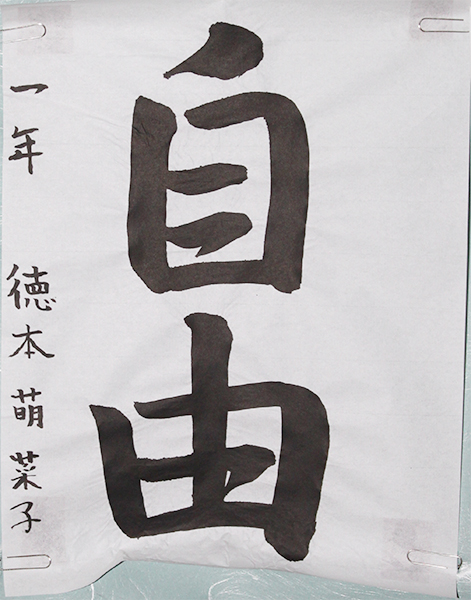 自由
一年 徳本萌菜子